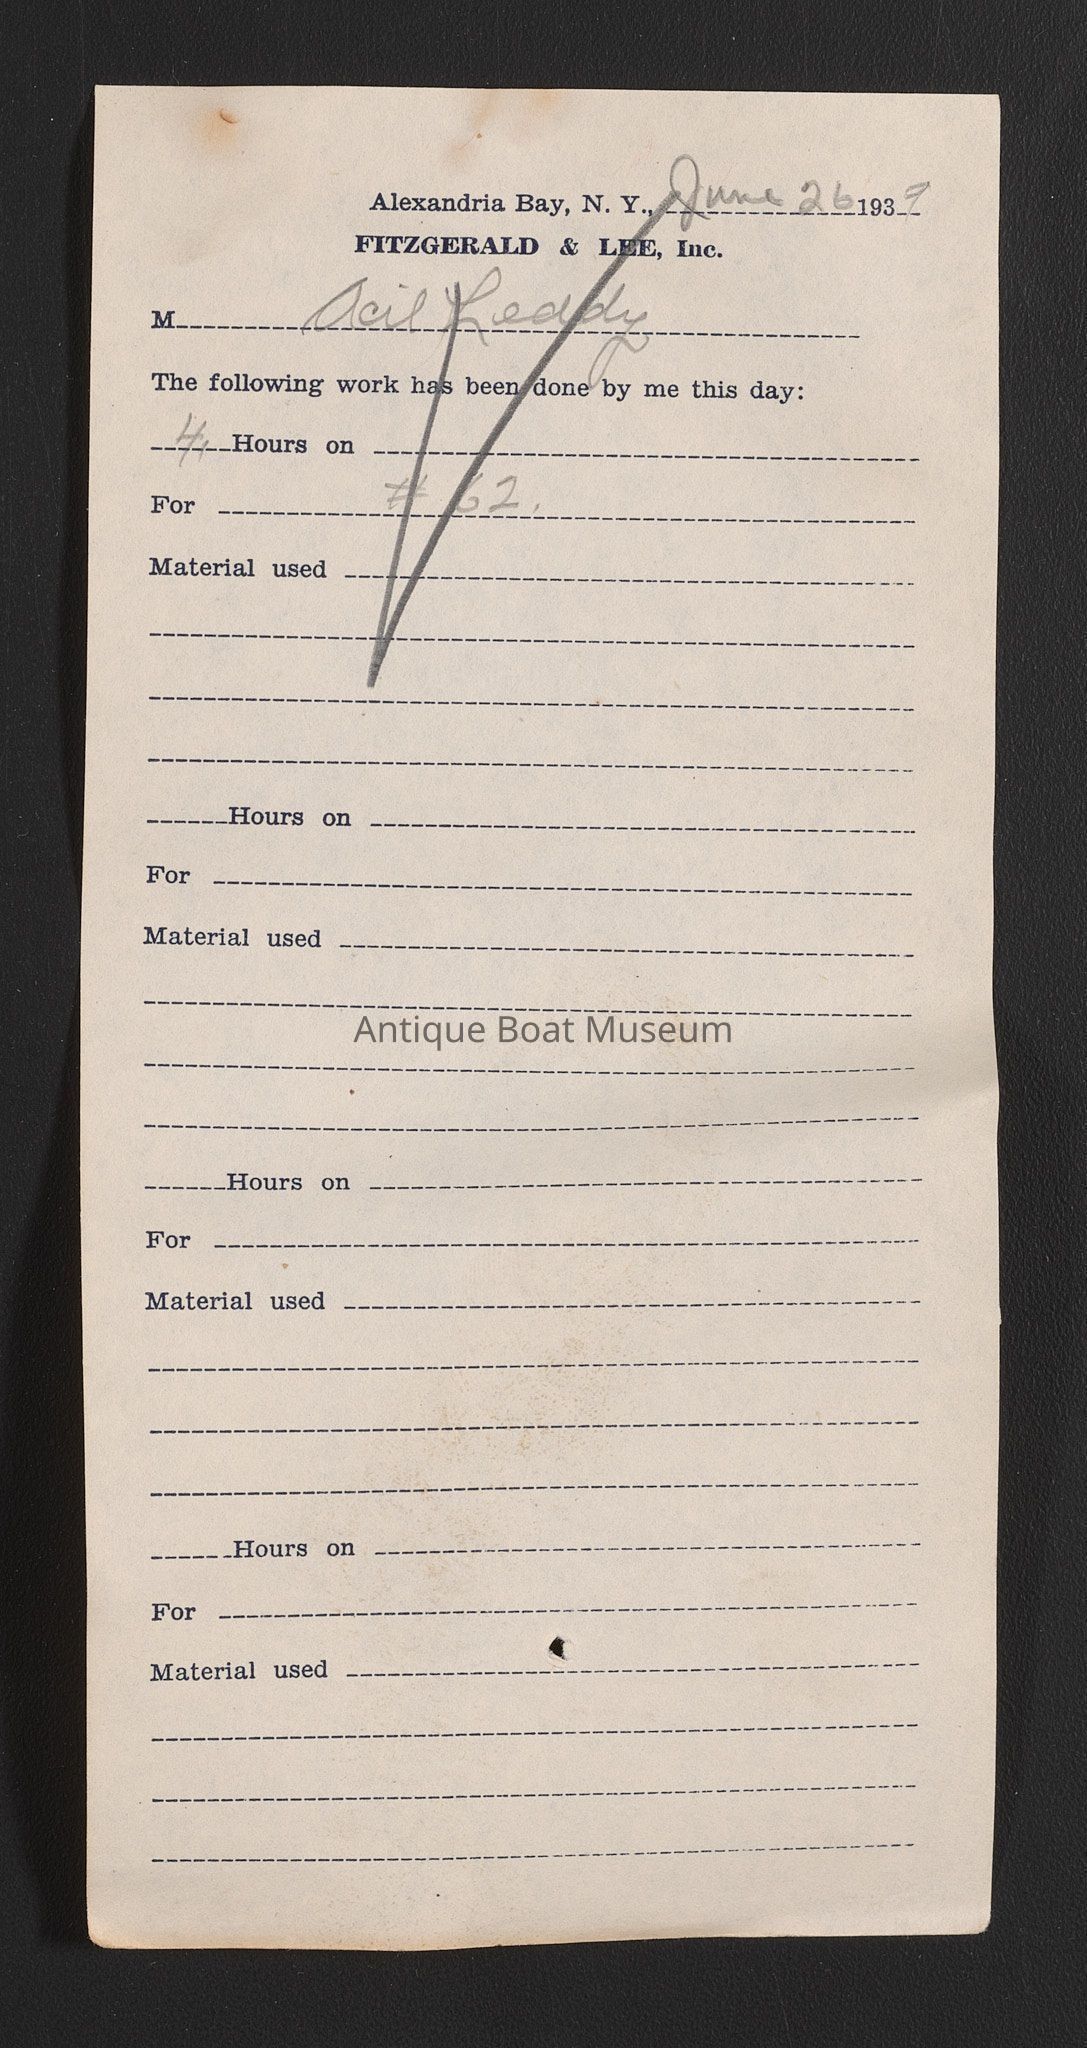 Alexandria Bay, N. Y., June 26 1939
FITZGERALD & LEE, Inc.
M Acil Leddy
The following work has been done by me this day:
4 Hours on
For # 62.
Material used
Hours on
For
Material used
Antique Boat Museum
Hours on
For
Material used
Hours on
For
Material used